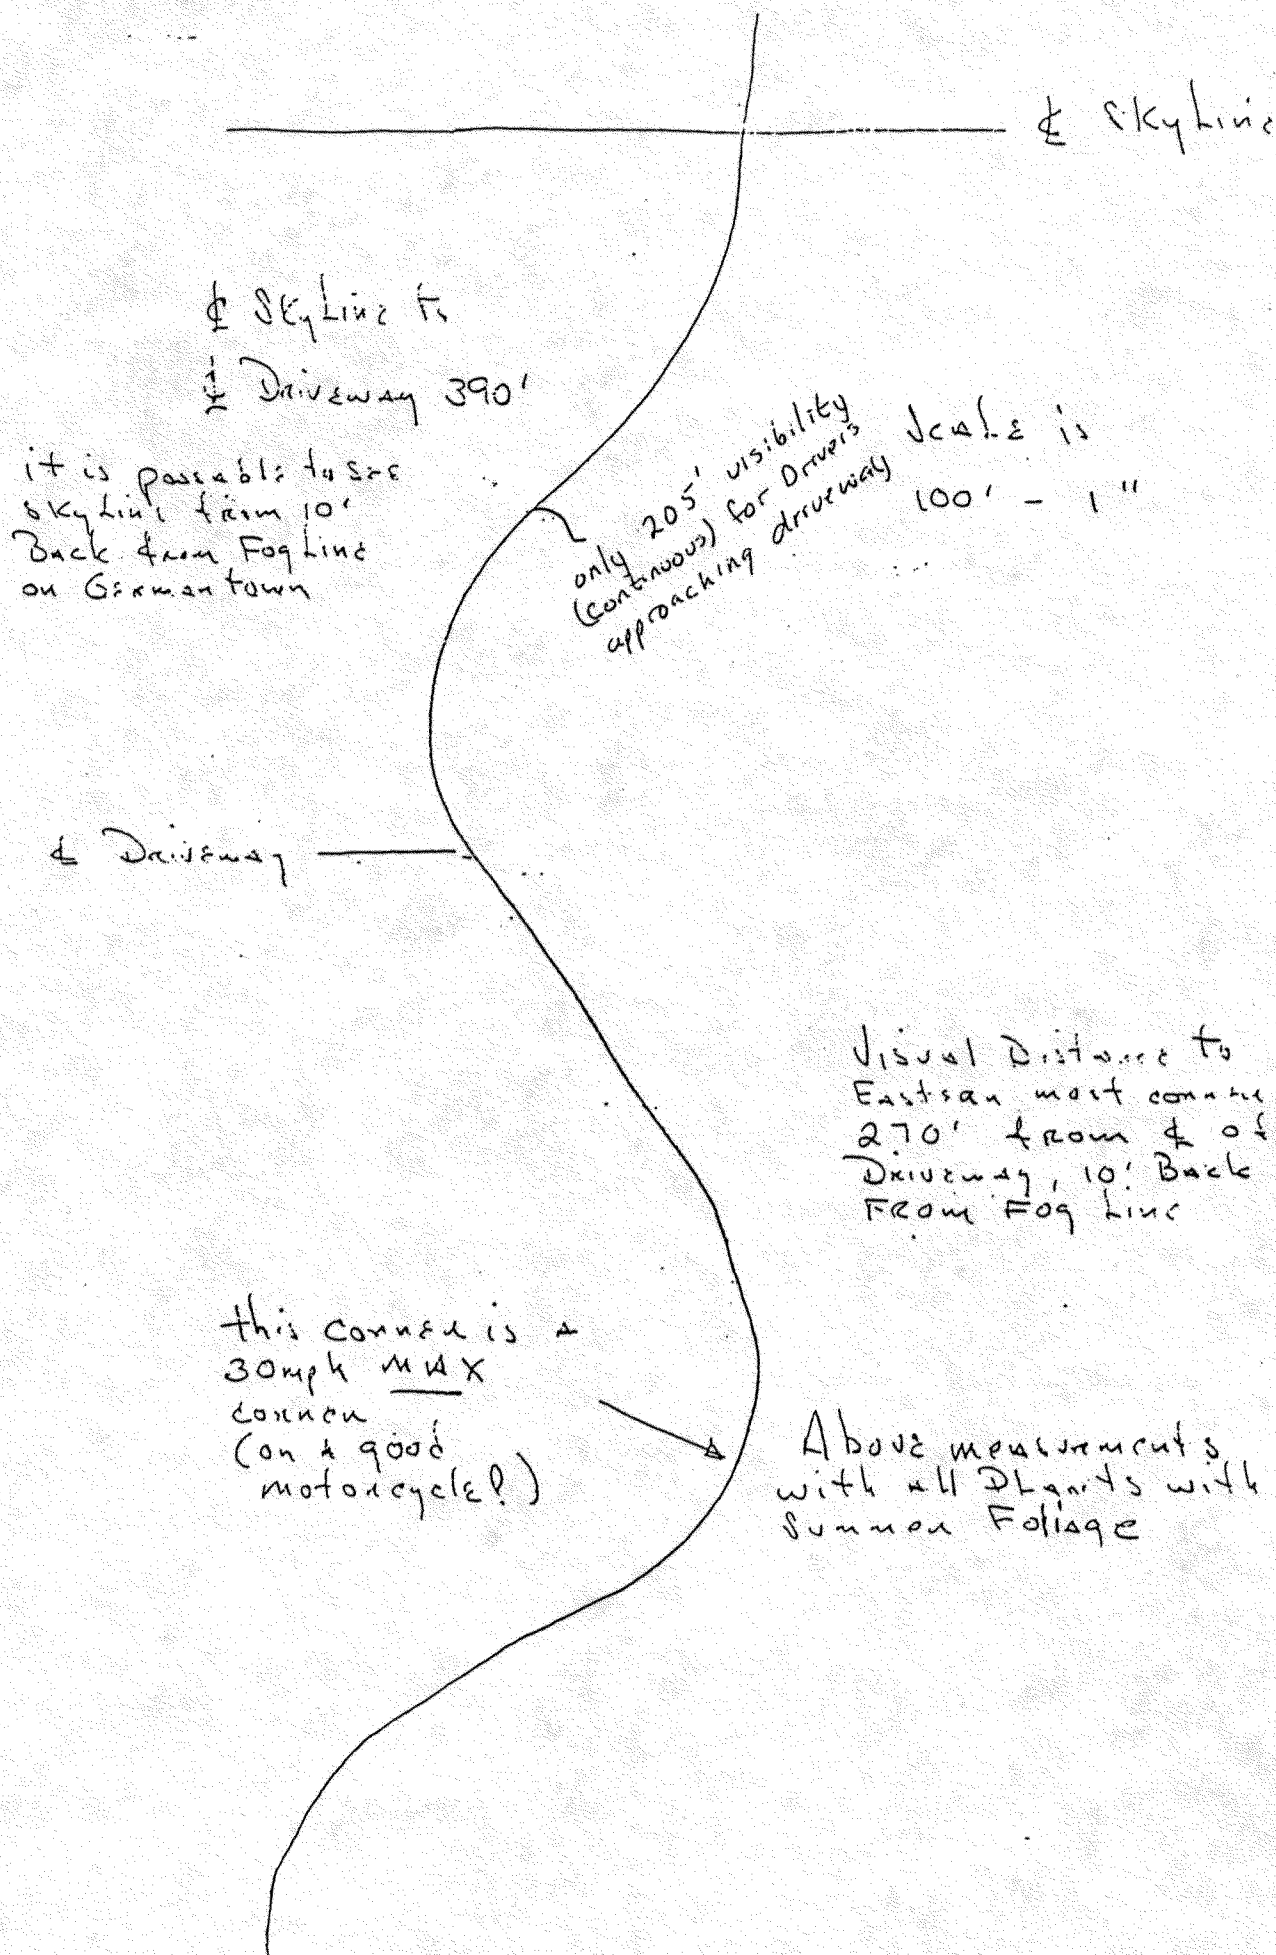 ℄ SkyLine
℄ SkyLine to
℄ Driveway 390'
it is possable to see
skyLine from 10'
Back from Fog Line
on Germantown
only 205' visibility
(continuous) for Drivers
approaching driveway
Scale is
100' - 1"
℄ Driveway
Visual Distance to
Eastern most corner
270' from ℄ of
Driveway, 10' Back
From Fog Line
this corner is a
30mph MAX
corner
(on a good
motorcycle!)
Above measurements
with all PLants with
Summer Foliage